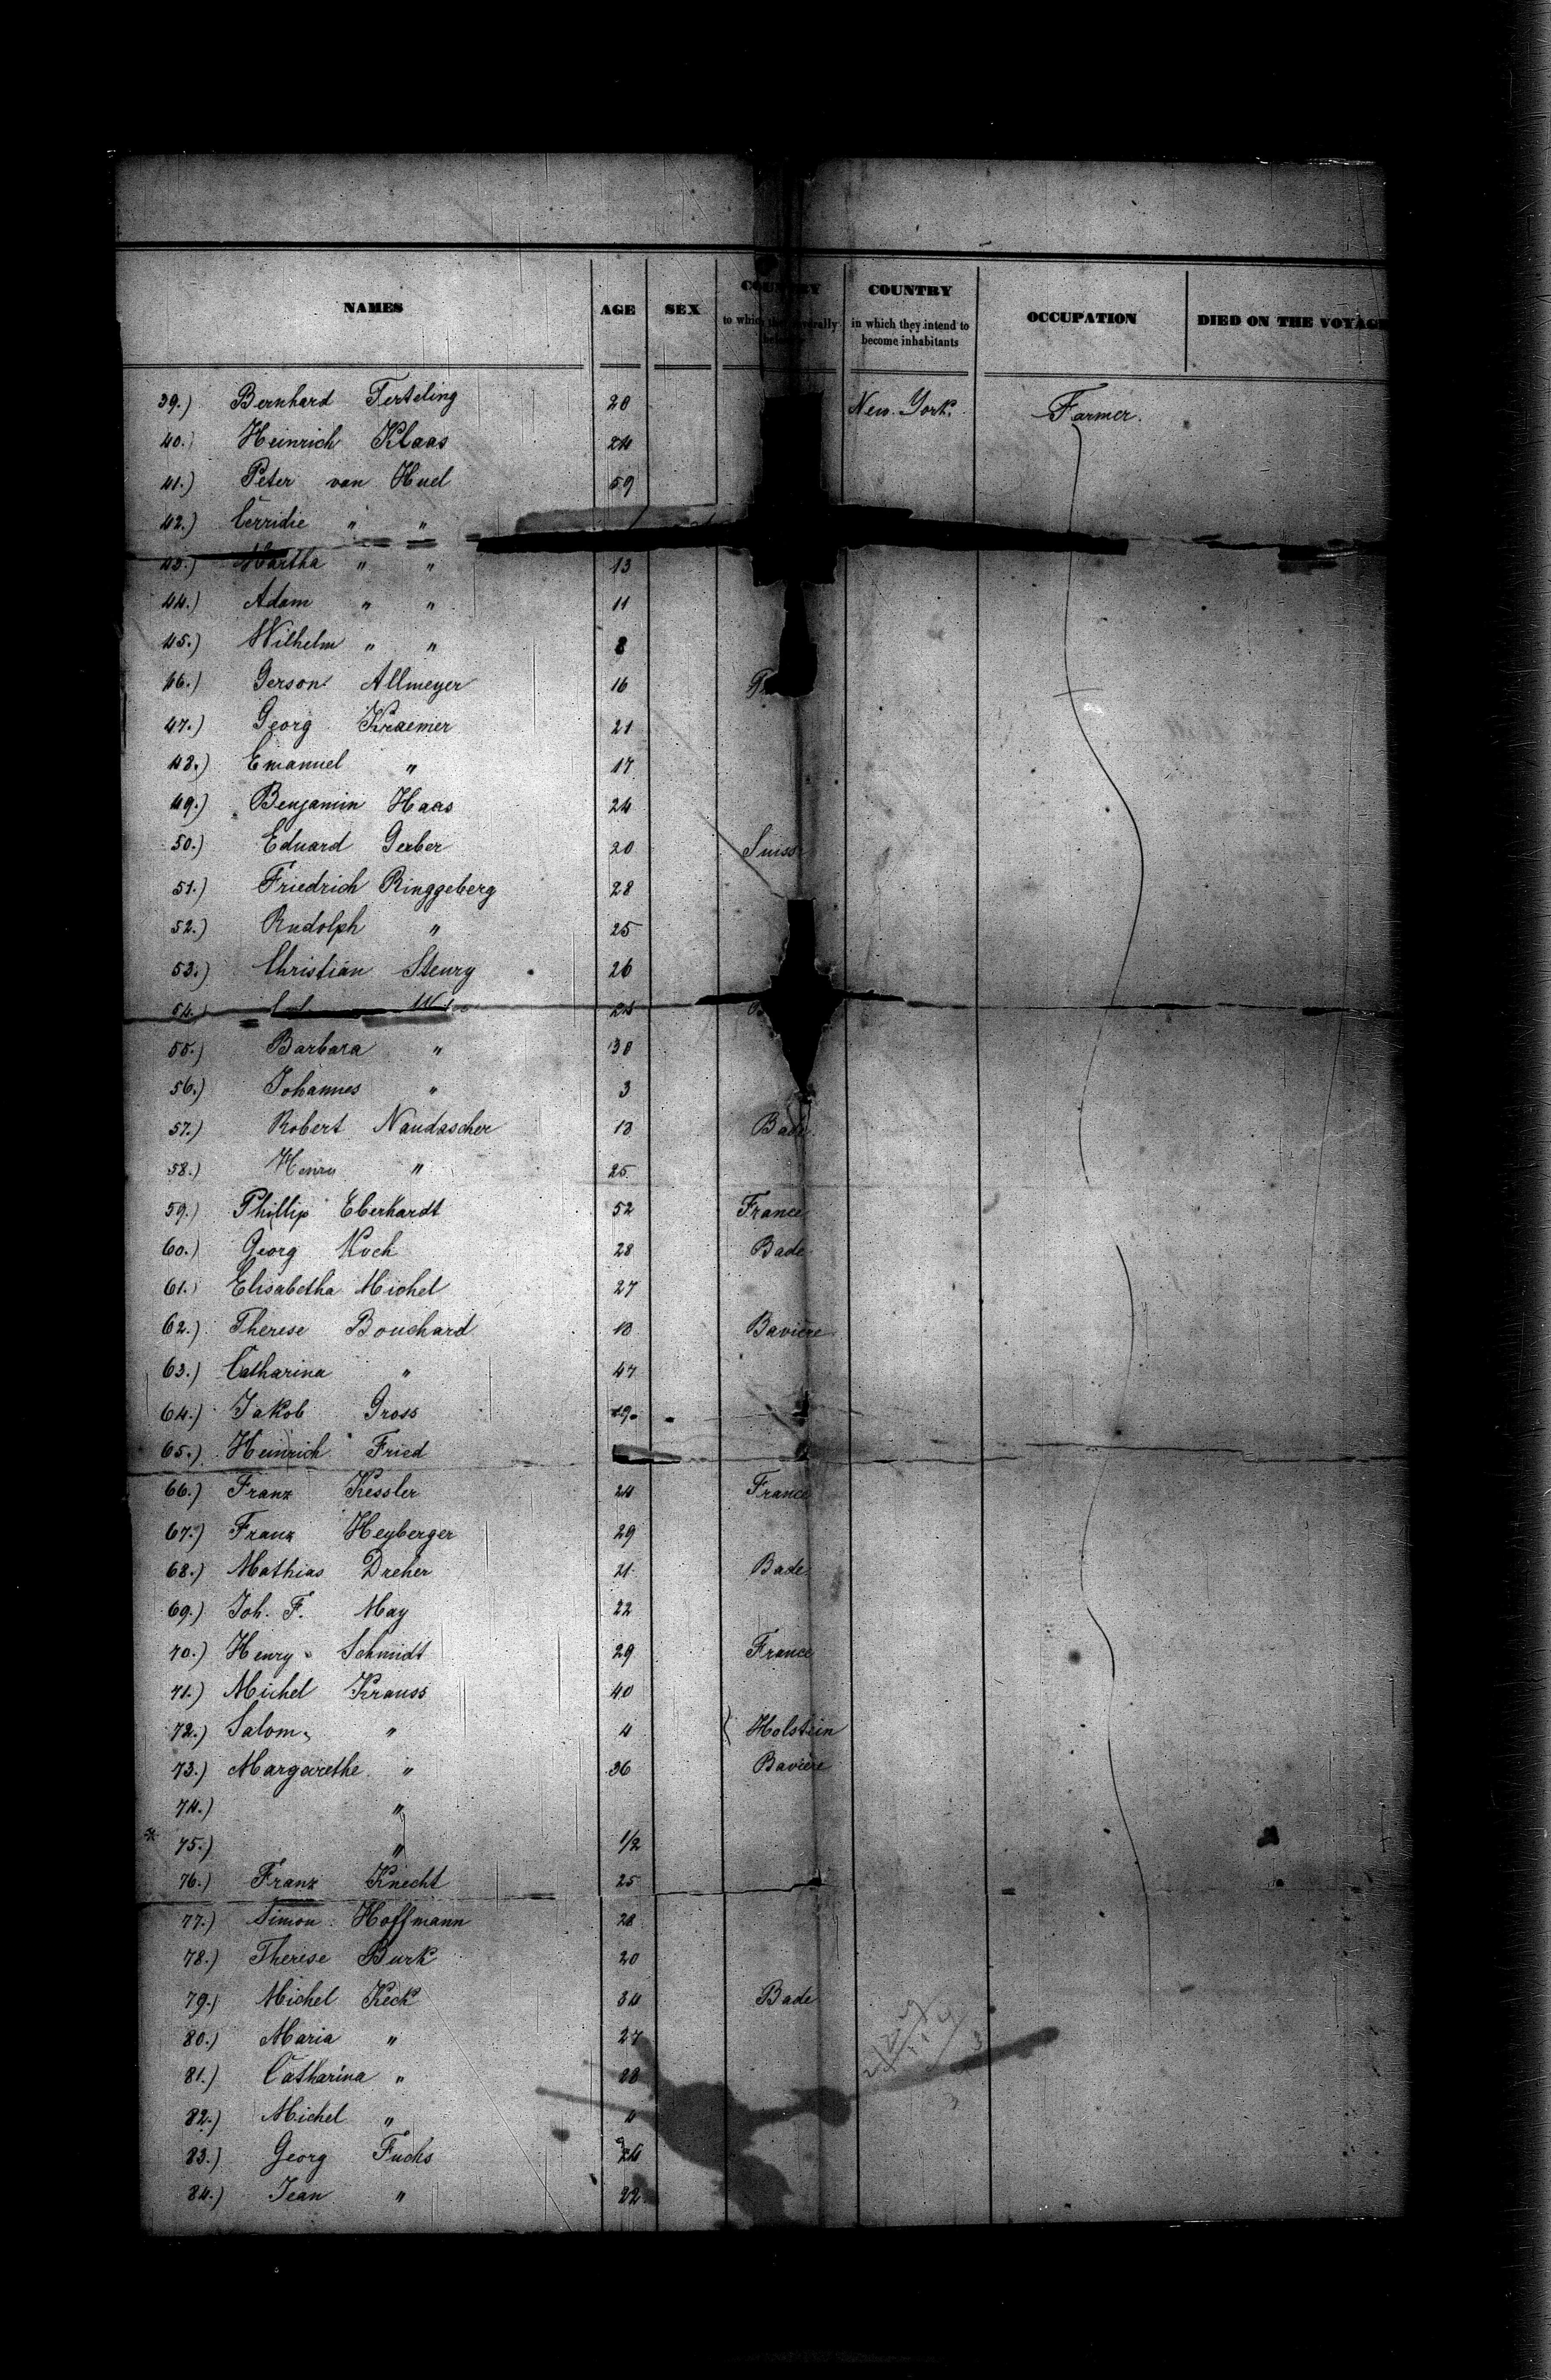 NAMES AGE SEX COUNTRY to which they severally belong COUNTRY in which they intend to become inhabitants OCCUPATION DIED ON THE VOYAGE
39.) Bernhard Ferteling 20 New-York. Farmer.
40.) Heinrich Klaas 24
41.) Peter van Huel 59
42.) " "
43.) Martha " " 13
44.) Adam " " 11
45.) Wilhelm " " 8
46.) Gerson Allmeyer 16
47.) Georg Kraemer 21
48.) Emanuel " 17
49.) Benjamin Haas 24
50.) Eduard Gerber 20 Suisse
51.) Friedrich Ringgeberg 28
52.) Rudolph " 25
53.) Christian Steury 26
54.)
55.) Barbara " 30
56.) Johannes " 3
57.) Robert Naudascher 18 Bade
58.) Henry " 25
59.) Phillip Eberhardt 52 France
60.) Georg Koch 28 Bade
61.) Elisabetha Michel 27
62.) Therese Bouchard 18 Baviere
63.) Catharina " 47
64.) Jakob Gross 19
65.) Heinrich Fried
66.) Franz Kessler 24 France
67.) Franz Heyberger 29
68.) Mathias Dreher 21 Bade
69.) Joh. F. May 22
70.) Henry Schmidt 29 France
71.) Michel Krauss 40
72.) Salom " 4 Holstein
73.) Margarethe " 36 Baviere
74.) "
75.) " 1/2
76.) Franz Knecht 25
77.) Simon Hoffmann 28
78.) Therese Burk 20
79.) Michel Keck 34 Bade
80.) Maria " 27
81.) Catharina " 28
82.) Michel " 4
83.) Georg Fuchs 24
84.) Jean " 22